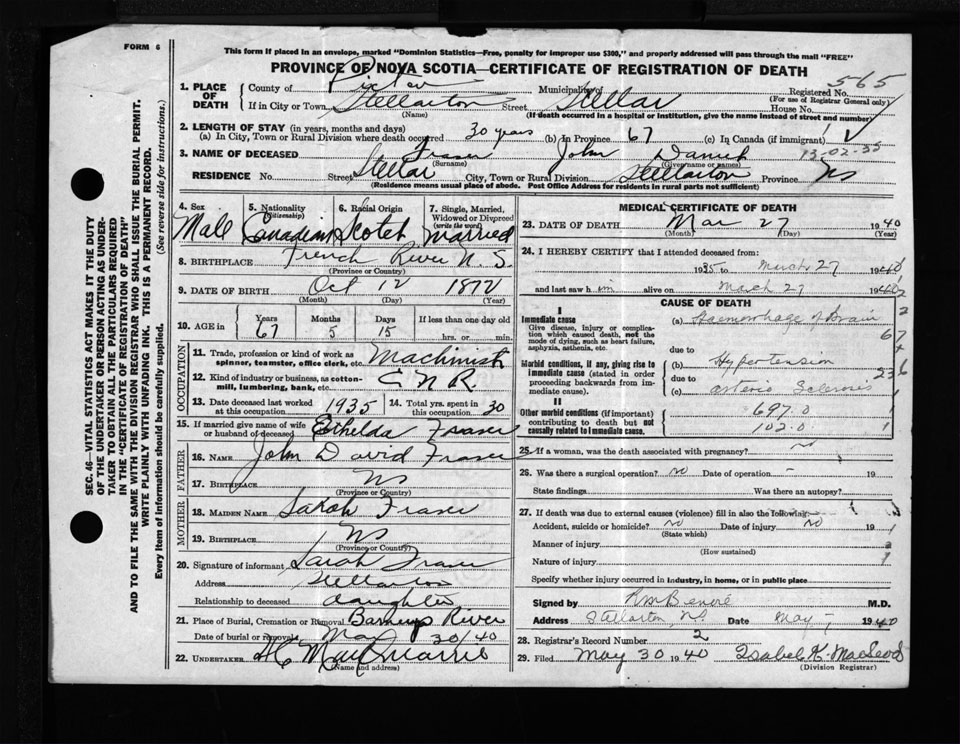 FORM 6
This form if placed in an envelope, marked "Dominion Statistics—Free, penalty for improper use $300," and properly addressed will pass through the mail "FREE"
PROVINCE OF NOVA SCOTIA—CERTIFICATE OF REGISTRATION OF DEATH
565
1. PLACE OF DEATH County of Pictou Municipality of Registered No.
(For use of Registrar General only)
If in City or Town Stellarton (Name) Street Stellar House No.
(If death occurred in a hospital or institution, give the name instead of street and number)
2. LENGTH OF STAY (in years, months and days)
(a) In City, Town or Rural Division where death occurred 30 years (b) In Province 67 (c) In Canada (if immigrant)
3. NAME OF DECEASED Fraser John Daniel
(Surname) (Given name or names)
13-02-35
RESIDENCE No. Street Stellar City, Town or Rural Division Stellarton Province NS
(Residence means usual place of abode. Post Office Address for residents in rural parts not sufficient)
4. Sex Male
5. Nationality (Citizenship) Canadian
6. Racial Origin Scotch
7. Single, Married, Widowed or Divorced (write the word) Married
8. BIRTHPLACE French River N.S.
(Province or Country)
9. DATE OF BIRTH Oct 12 1872
(Month) (Day) (Year)
10. AGE in Years 67 Months 5 Days 15 If less than one day old hrs. or min.
OCCUPATION
11. Trade, profession or kind of work as spinner, teamster, office clerk, etc. Machinist
12. Kind of industry or business, as cotton-mill, lumbering, bank, etc. C N R
13. Date deceased last worked at this occupation 1935 14. Total yrs. spent in this occupation 30
15. If married give name of wife or husband of deceased Ethelda Fraser
FATHER
16. NAME John David Fraser
17. BIRTHPLACE NS
(Province or Country)
MOTHER
18. MAIDEN NAME Sarah Fraser
19. BIRTHPLACE NS
(Province or Country)
20. Signature of informant Sarah Fraser
Address Stellarton
Relationship to deceased daughter
21. Place of Burial, Cremation or Removal Barneys River
Date of burial or removal Mar 30/40
22. UNDERTAKER
(Name and address)
MEDICAL CERTIFICATE OF DEATH
23. DATE OF DEATH Mar 27 1940
(Month) (Day) (Year)
24. I HEREBY CERTIFY that I attended deceased from:
1935 to March 27 1940
and last saw him alive on March 27 1940
CAUSE OF DEATH
I
Immediate cause
Give disease, injury or complication which caused death, not the mode of dying, such as heart failure, asphyxia, asthenia, etc.
(a) Haemorrhage of Brain
due to
Morbid conditions, if any, giving rise to immediate cause (stated in order proceeding backwards from immediate cause).
(b) Hypertension
due to
(c) arterio Sclerosis
II
Other morbid conditions (if important) contributing to death but not causally related to immediate cause.
697.0
102.0
25. If a woman, was the death associated with pregnancy? no
26. Was there a surgical operation? no Date of operation - 19
State findings Was there an autopsy?
27. If death was due to external causes (violence) fill in also the following:—
Accident, suicide or homicide? no Date of injury no 19
(State which)
Manner of injury
(How sustained)
Nature of injury
Specify whether injury occurred in industry, in home, or in public place
Signed by M.D.
Address Stellarton NS Date May 1940
28. Registrar's Record Number 2
29. Filed May 30 1940 Isabel K. MacLeod
(Division Registrar)
SEC. 46—VITAL STATISTICS ACT MAKES IT THE DUTY OF THE UNDERTAKER OR PERSON ACTING AS UNDERTAKER TO OBTAIN ALL THE PARTICULARS REQUIRED IN THE "CERTIFICATE OF REGISTRATION OF DEATH"
AND TO FILE THE SAME WITH THE DIVISION REGISTRAR WHO SHALL ISSUE THE BURIAL PERMIT.
WRITE PLAINLY WITH UNFADING INK. THIS IS A PERMANENT RECORD.
Every item of Information should be carefully supplied. (See reverse side for instructions.)